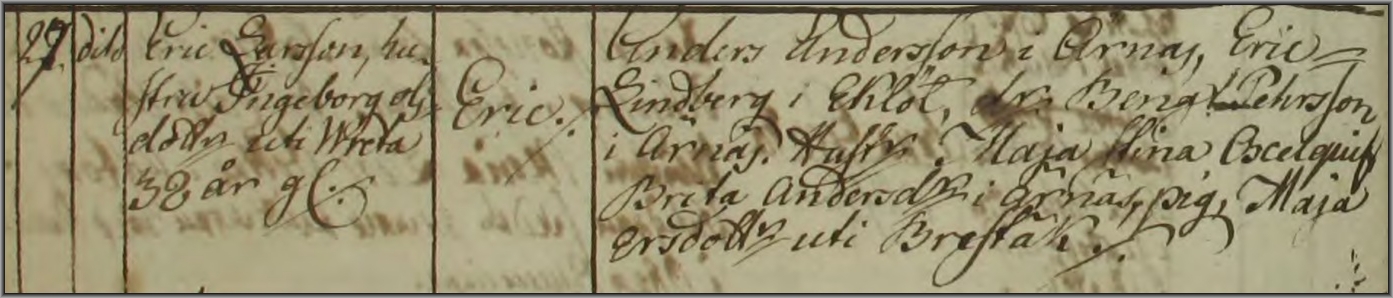 27. dito Eric Larsson, hu-
stru Ingeborg ols
dotter uti Wreta
38 år gl.
Eric.
Anders Andersson i Årnäs, Eric
Lindberg i Eklöt, dr. Bengt Pehrsson
i Årnäs. Hustr. Maja Stina
Brita Andersdr i Årnäs, pig, Maja
Ersdotter uti Brestäk.